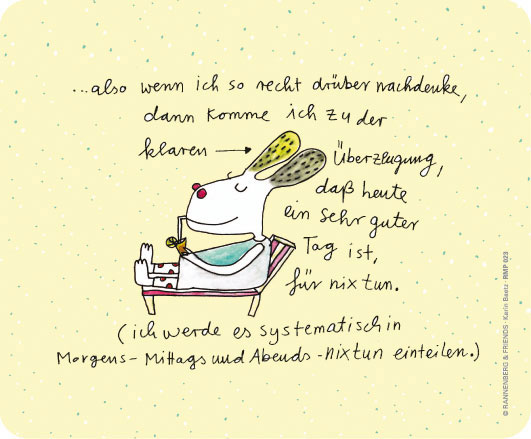 ...also wenn ich so recht drüber nachdenke,
dann komme ich zu der
klaren → Überzeugung,
daß heute
ein sehr guter
Tag ist,
für nix tun.
(ich werde es systematisch in
Morgens- Mittags und Abends -nixtun einteilen.)
© RANNENBERG & FRIENDS · Karin Beetz · RMP 023